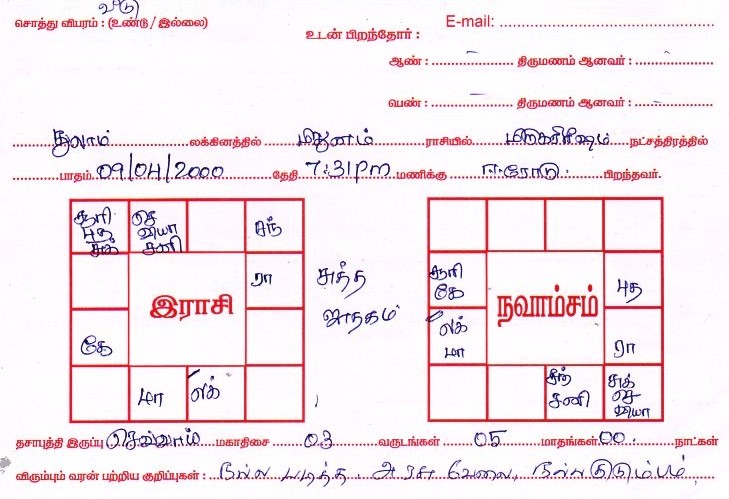 வீடு
சொத்து விபரம் : (உண்டு / இல்லை)
E-mail: ........................
உடன் பிறந்தோர் :
ஆண் : .................... திருமணம் ஆனவர் : ....................
பெண் : .................... திருமணம் ஆனவர் : ....................
துலாம் லக்கினத்தில் மிதுனம் ராசியில் மிருகசீரிஷம் நட்சத்திரத்தில்
பாதம் 09/04/2000 தேதி 7:31pm மணிக்கு ஈரோடு பிறந்தவர்.
சூரி புத சுக்
செ வியா சனி
சந்
ரா
இராசி
கே
மா
லக்
சுத்த
ஜாதகம்
சூரி கே
புத
நவாம்சம்
லக் மா
ரா
சந் சனி
சுக் செ வியா
தசாபுத்தி இருப்பு செவ்வாய் மகாதிசை 03 வருடங்கள் 05 மாதங்கள் 00 நாட்கள்
விரும்பும் வரன் பற்றிய குறிப்புகள் : நல்ல படித்த, அரசு வேலை, நல்ல குடும்பம்